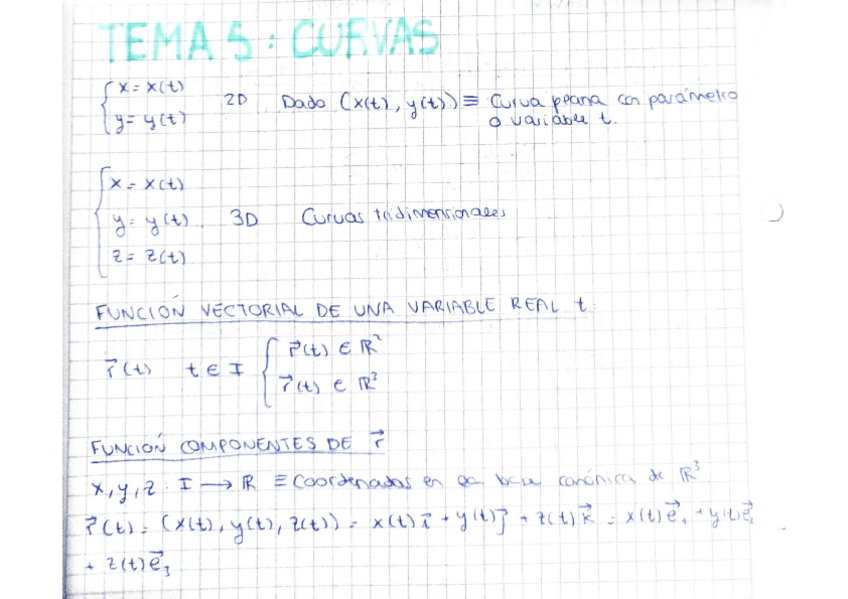 TEMA 5: CURVAS
{ x = x(t)
y = y(t)
2D Dado (x(t), y(t)) ≡ Curva plana con parámetro
o variable t.
{ x = x(t)
y = y(t)
z = z(t)
3D Curvas tridimensionales
FUNCIÓN VECTORIAL DE UNA VARIABLE REAL t:
r⃗(t) t ∈ I { r⃗(t) ∈ ℝ²
r⃗(t) ∈ ℝ³
FUNCIÓN COMPONENTES DE r⃗
x, y, z: I → ℝ ≡ Coordenadas en la base canónica de ℝ³
r⃗(t) = (x(t), y(t), z(t)) = x(t) i⃗ + y(t) j⃗ + z(t) k⃗ = x(t) e⃗₁ + y(t) e⃗₂
+ z(t) e⃗₃